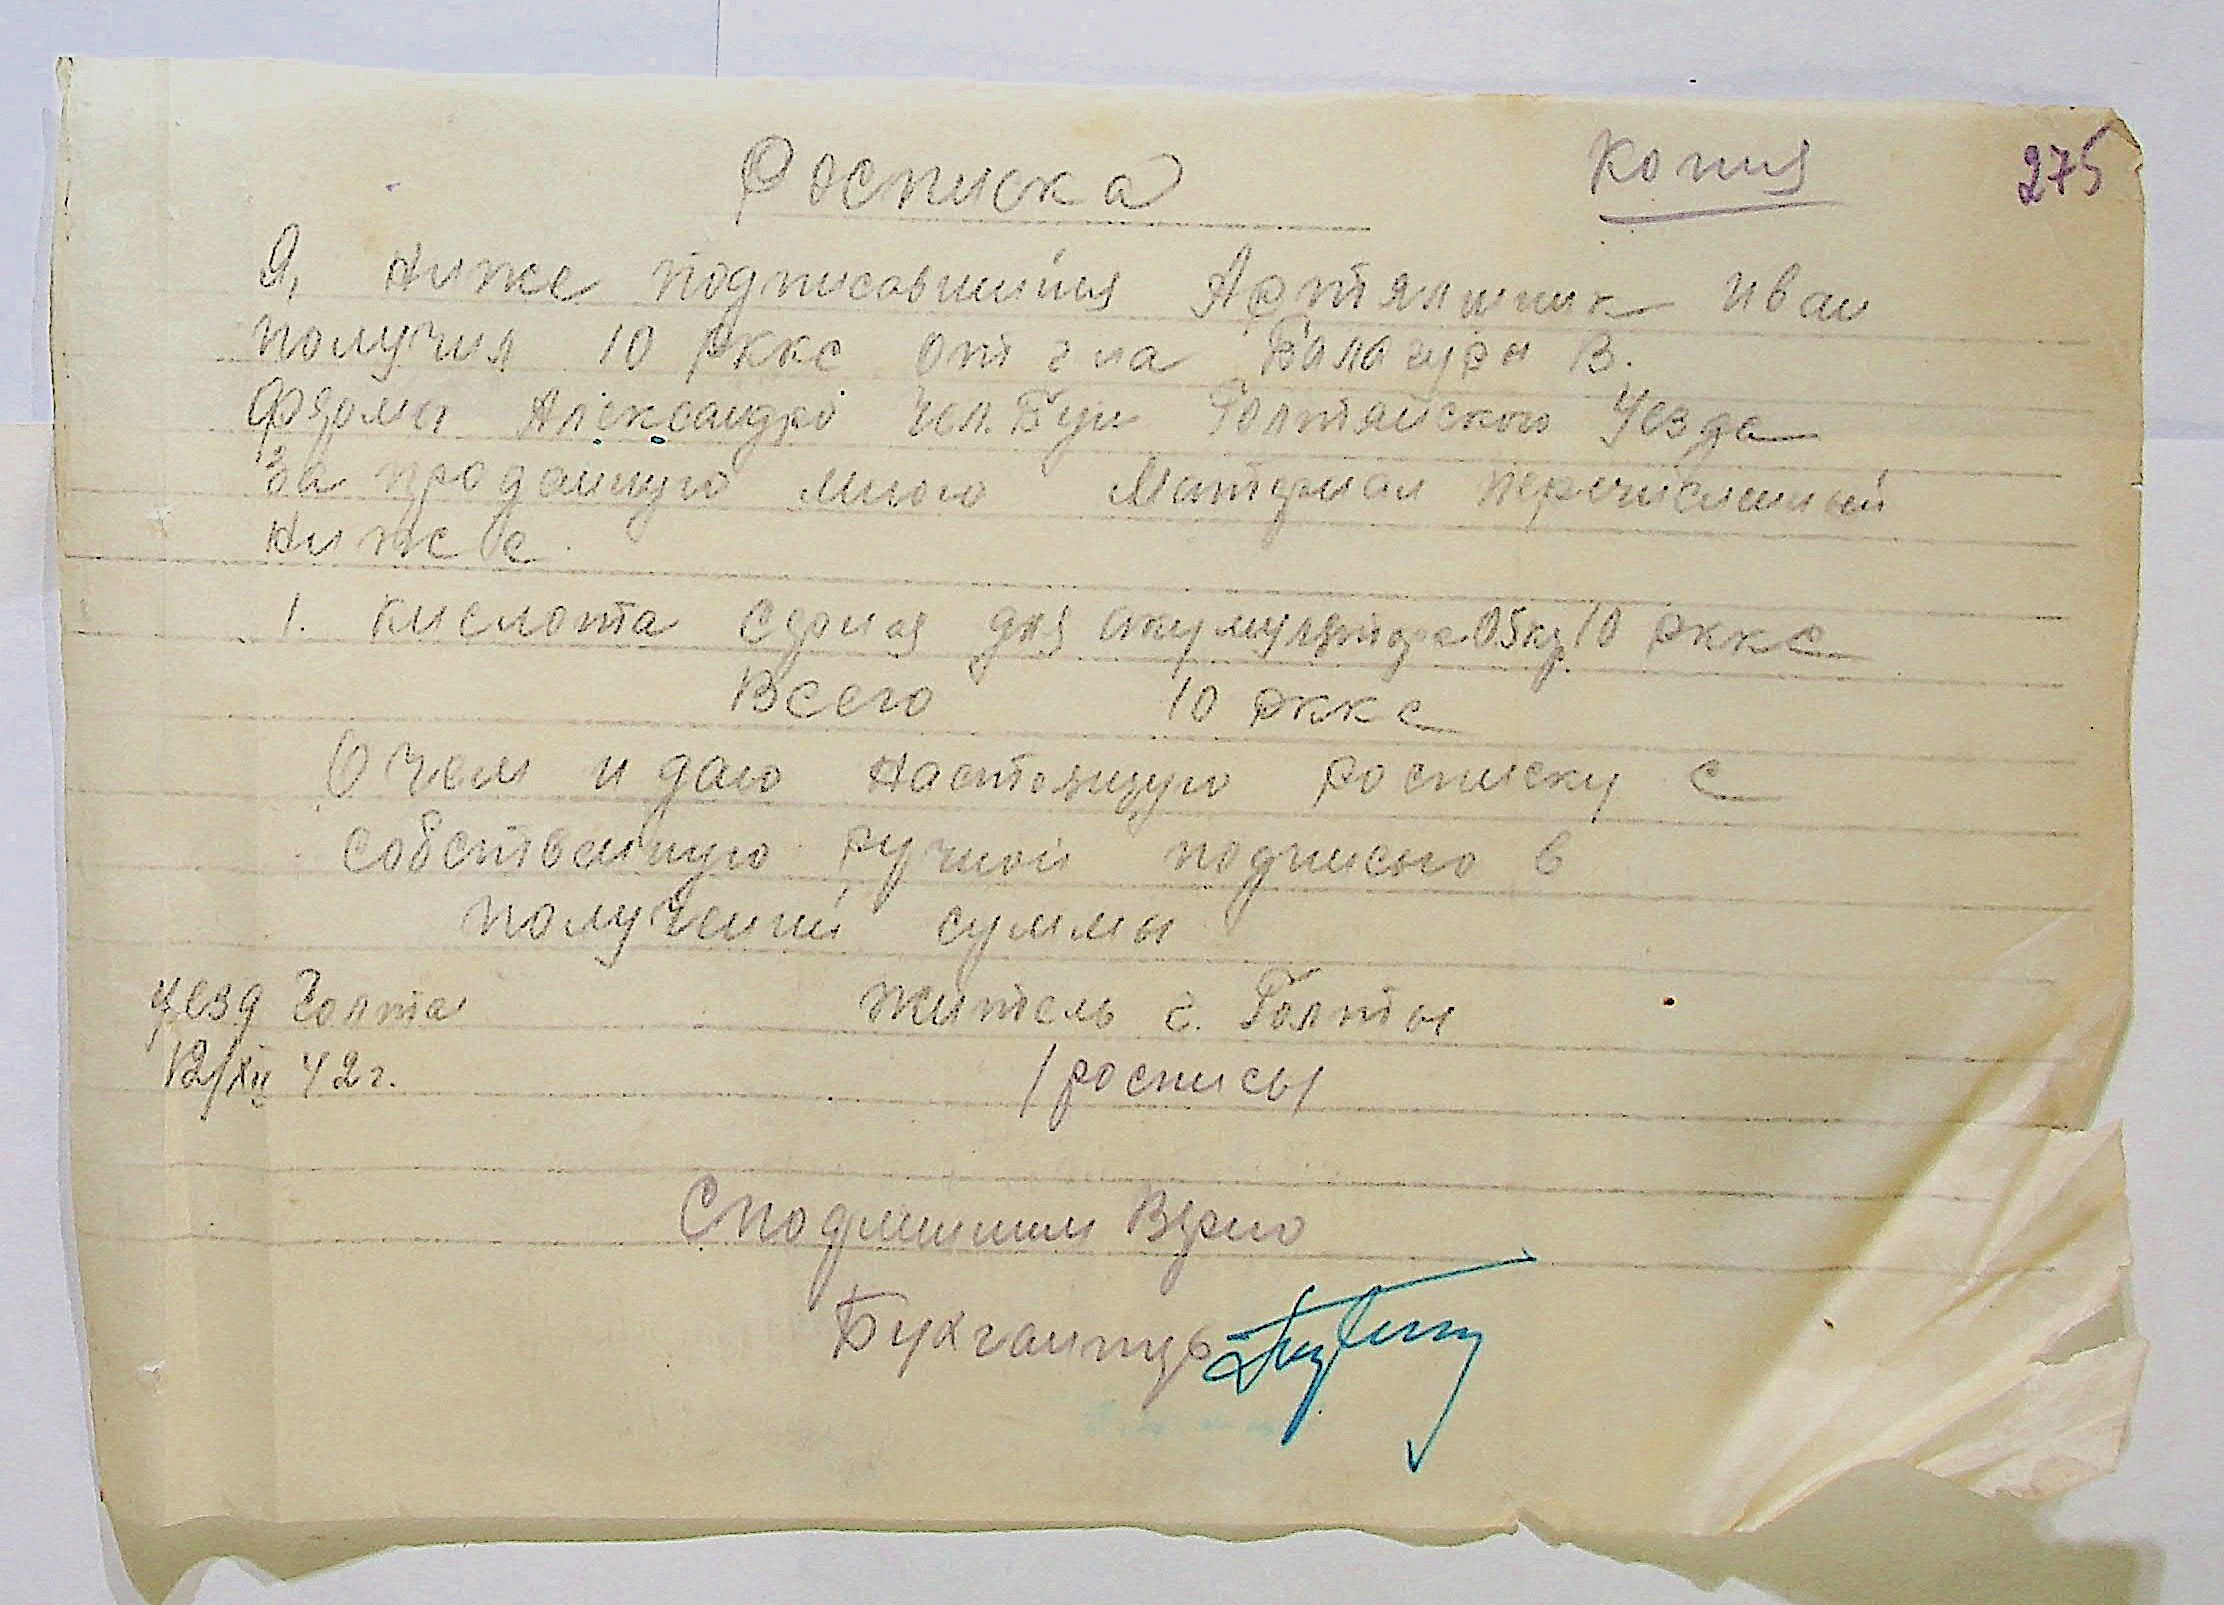 Росписка Копия 275
Я, ниже подписавшийся Артялшик Иван
получил 10 рккс от г-на Балагуры В.
Фэрмы Александро Чел. Буг Голтяйского Уезда
За проданную мною Материал перечисленный
Ниже
1. Кислота едкая для акумулятора 05 кг 10 рккс
Всего 10 рккс
О чем и даю настоящую росписку с
собственную ручной подписью в
получении суммы
уезд Голта Житель г. Голты
12/XII 42 г. /роспись/
С подлинным Врно
Бухгалтер